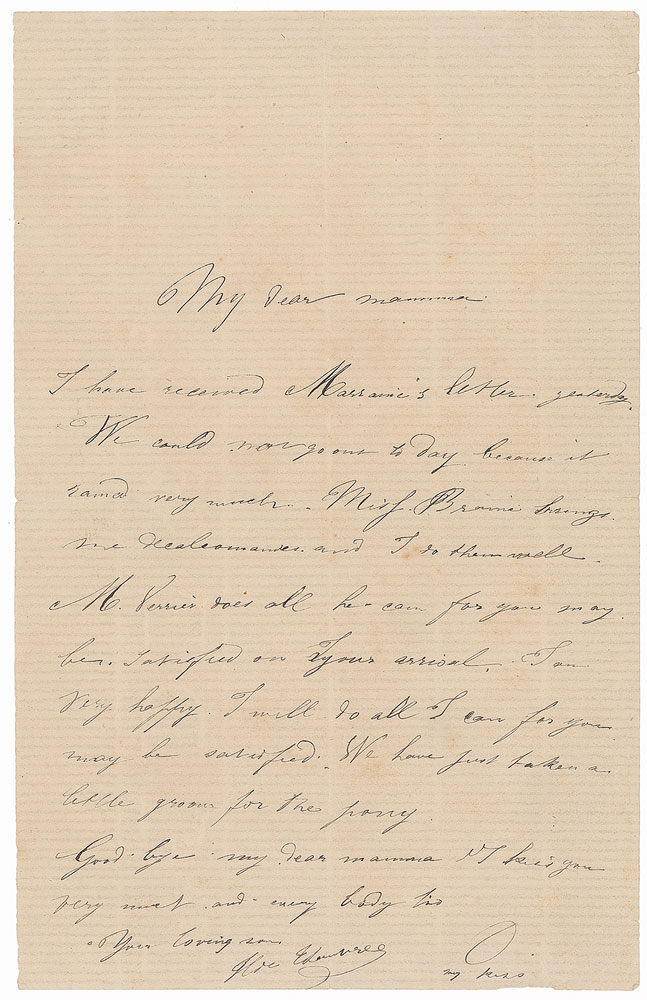 My dear mamma
I have received Marraine's letter. yesterday.
We could not go out to day because it
rained very much. Miss. Braine brings.
me decalcomanies. and I do them well.
M. Verrier does all he can for you may.
be. satisfied on your arrival. I am
very happy. I will do all I can for you
may be satisfied. We have just taken a
little groom for the pony.
Good-bye my dear mamma I kiss you
very much and every body too
Your loving son
my kiss